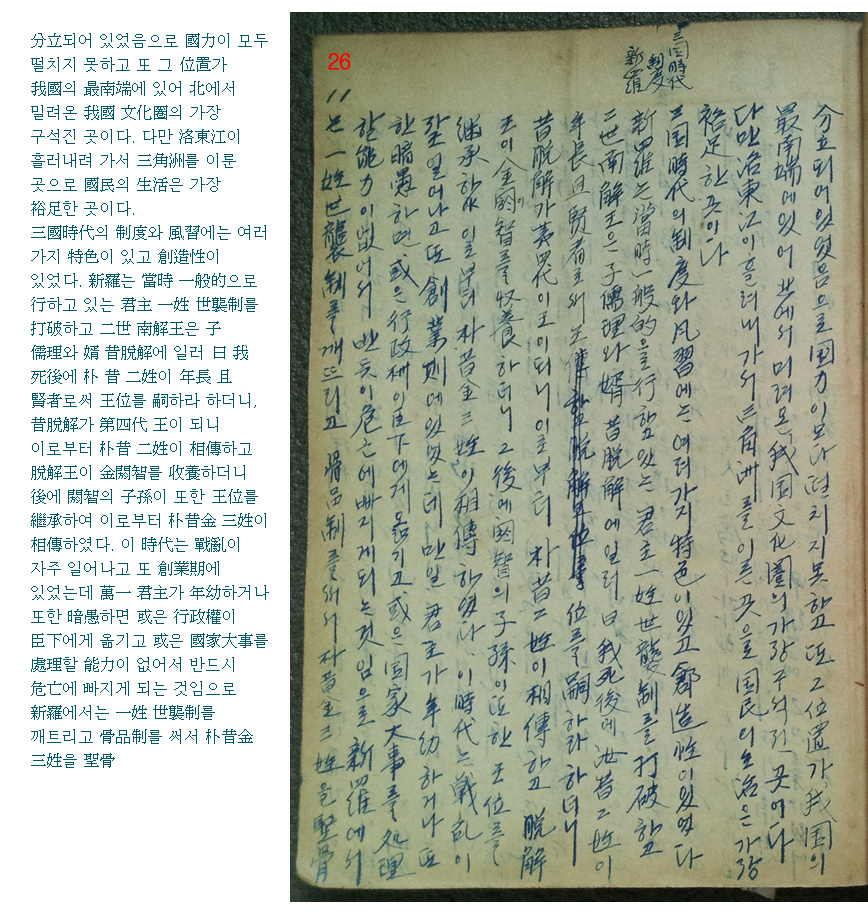 分立되어 있었음으로 國力이 모두
떨치지 못하고 또 그 位置가
我國의 最南端에 있어 北에서
밀려온 我國 文化圈의 가장
구석진 곳이다. 다만 洛東江이
흘러내려 가서 三角洲를 이룬
곳으로 國民의 生活은 가장
裕足한 곳이다.
三國時代의 制度와 風習에는 여러
가지 特色이 있고 創造性이
있었다. 新羅는 當時 一般的으로
行하고 있는 君主 一姓 世襲制를
打破하고 二世 南解王은 子
儒理와 婿 昔脫解에 일러 曰 我
死後에 朴 昔 二姓이 年長 且
賢者로써 王位를 嗣하라 하더니,
昔脫解가 第四代 王이 되니
이로부터 朴昔 二姓이 相傳하고
脫解王이 金閼智를 收養하더니
後에 閼智의 子孫이 또한 王位를
繼承하여 이로부터 朴昔金 三姓이
相傳하였다. 이 時代는 戰亂이
자주 일어나고 또 創業期에
있었는데 萬一 君主가 年幼하거나
또한 暗愚하면 或은 行政權이
臣下에게 옮기고 或은 國家大事를
處理할 能力이 없어서 반드시
危亡에 빠지게 되는 것임으로
新羅에서는 一姓 世襲制를
깨트리고 骨品制를 써서 朴昔金
三姓을 聖骨
26
三国時代
制度
新羅
分立되어있었음으로 国力이모다 떨치지못하고 또그位置가 我国의
最南端에있어 北에서 미려온 我国文化圈의 가장구석진 곳이다
다만 洛東江이흘려내가서 三角洲를이룬 곳으로 国民의生活은 가장
裕足한곳이다
三国時代의制度와 风習에는 여러가지 特色이있고 創造性이있었다
新羅는當時一般的을로行하고있는 君主一姓世襲制를 打破하고
二世南解王은 子儒理와 婿 昔脫解에일러 曰 我死後에 昔二姓이
年長且 賢者로써 王 位를嗣하라하더니
昔脫解가 第四代이王이되니 이로부터 朴昔二姓이相傳하고 脫解
王이金閼智를收養하더니 그後에閼智의子孫이또한王位를
繼承하 이로부터朴昔金三姓이相傳하였다. 이時代는戰乱이
잘일어나고또創業期에있었는데 만일君主가年幼하거나또
한暗愚하면或은行政權이臣下에게옮기고或은国家大事를処理
할能力이없어서 반듯이危亡에빠지게되는것임으로 新羅에서
11
는一姓世襲制를깨뜨리고 骨品制를써서 朴昔金三姓을聖骨